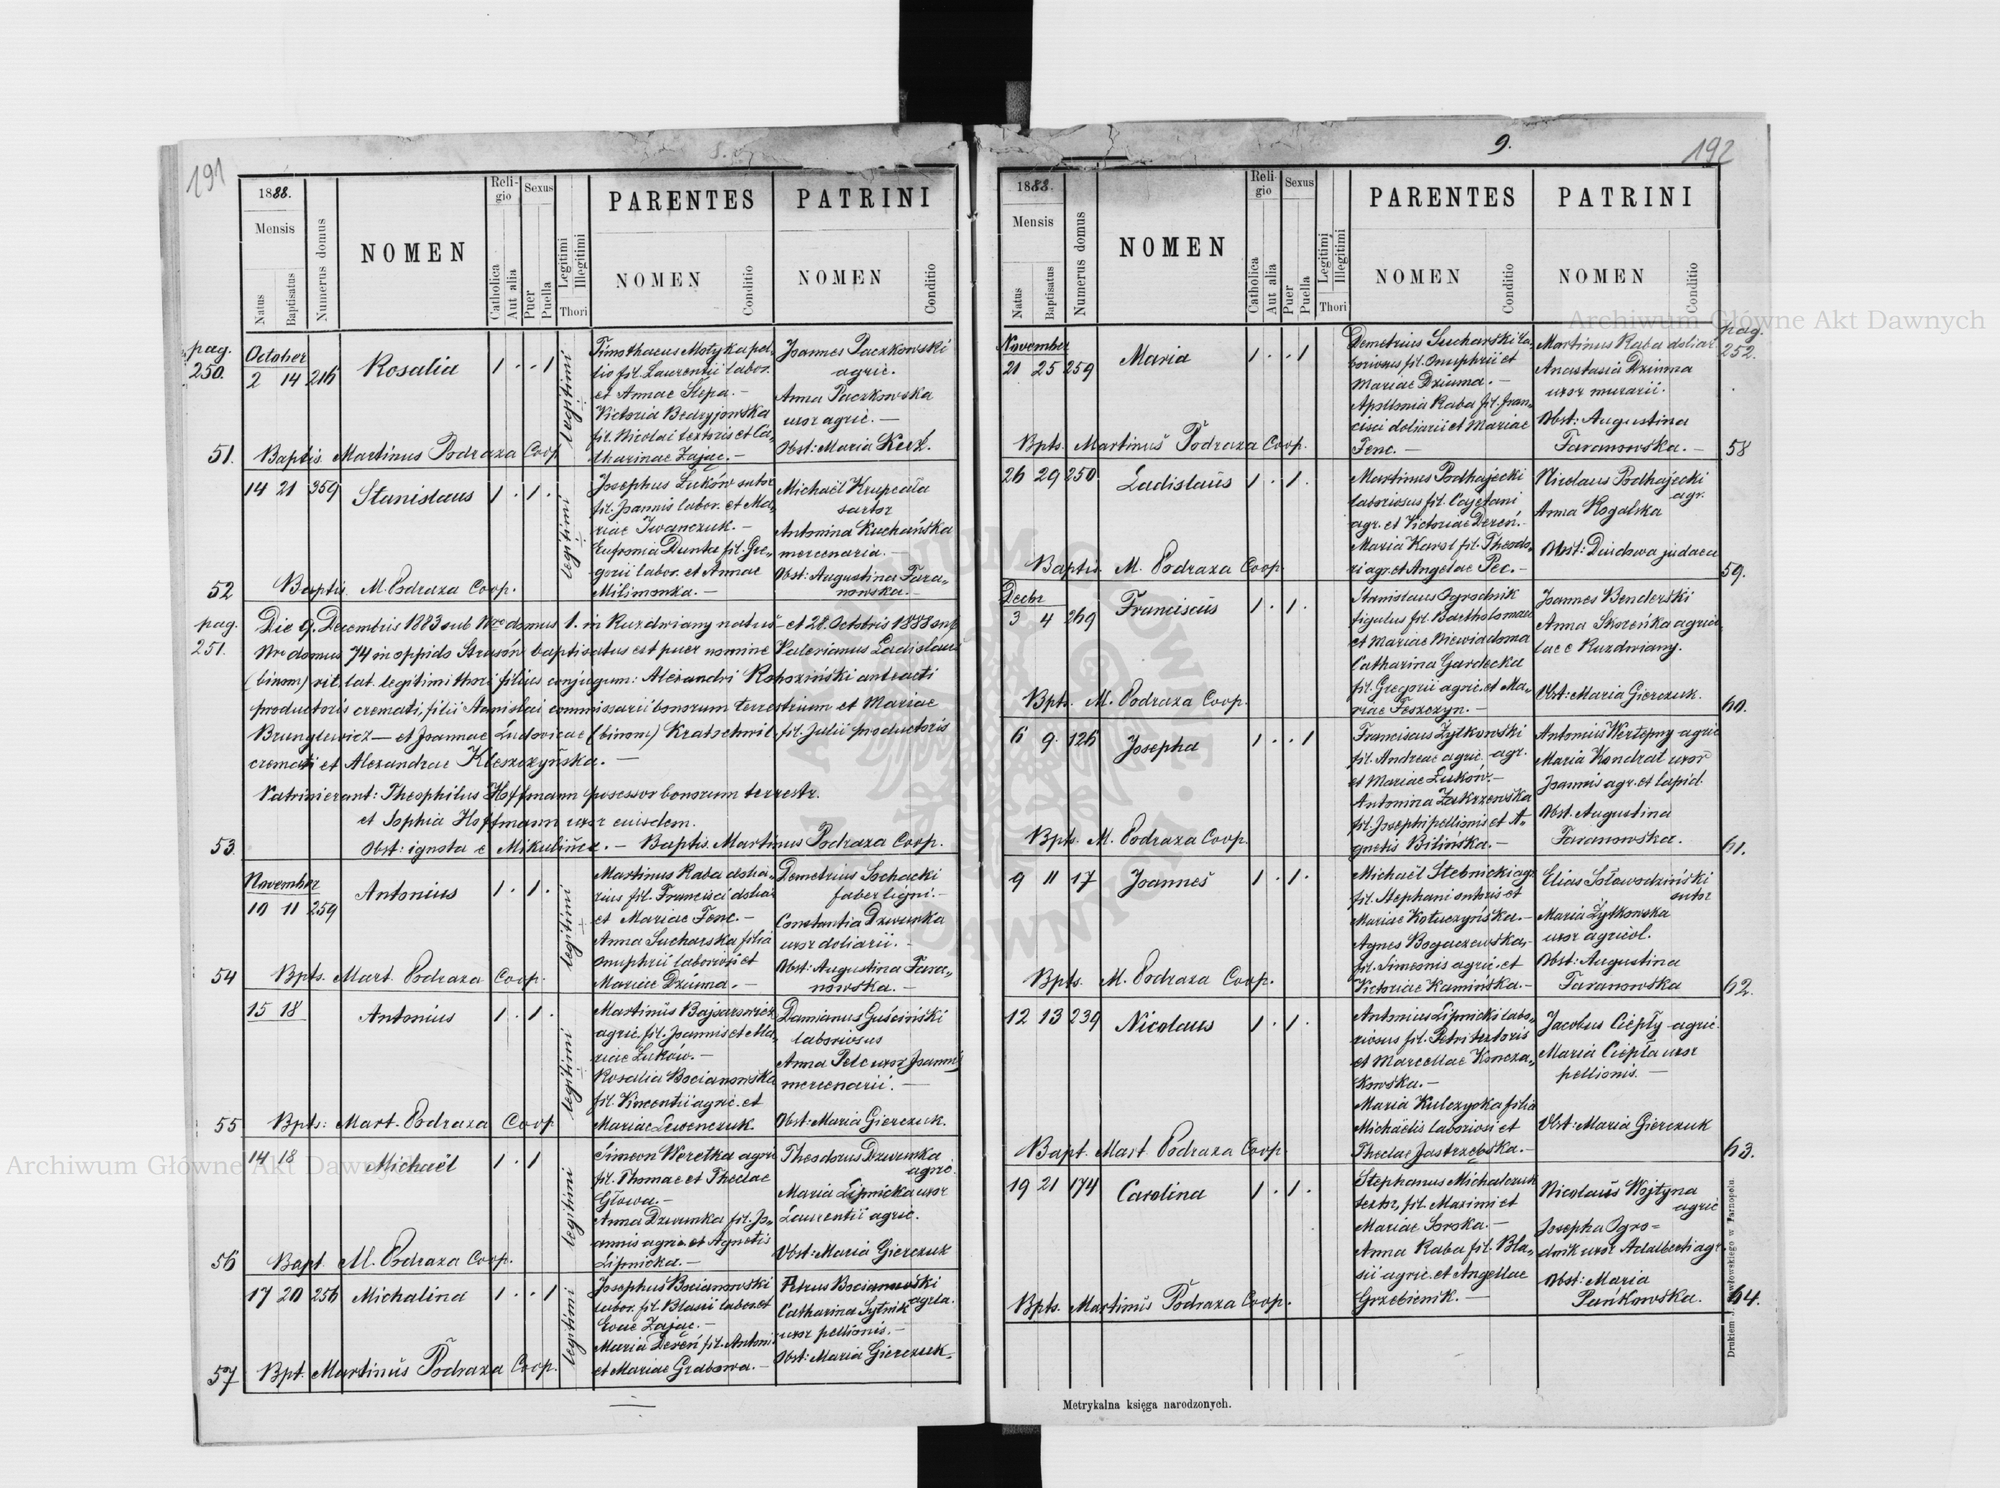 191
1888.
Mensis
Natus
Baptisatus
Numerus domus
NOMEN
Religio
Catholica
Aut alia
Sexus
Puer
Puella
Legitimi
Illegitimi
Thori
PARENTES
NOMEN
Conditio
PATRINI
NOMEN
Conditio
pag.
250.
October
2 14 216
Rosalia
1 . . 1
legitimi
Timothaeus Motyka pel-
lio fil. Laurentii labor.
et Annae Slepa. -
Victoria Bedryjowska
fil. Nicolai textoris et Ca-
tharinae Zając. -
Joannes Paczkowski
agric.
Anna Paczkowska
uxor agric. -
Obst: Maria Kerl.
51. Baptis. Martinus Podraza Coop.
14 21 359
Stanislaus
1 . 1 .
legitimi
Josephus Łuków sutor
fil. Joannis labor. et Ma-
riae Iwanczuk. -
Eufrosia Dunta fil. Gre-
gorii labor. et Annae
Milimonka. -
Michaël Krupcała
sartor
Antonina Kuchańska
mercenaria. -
Obst: Augustina Tara-
nowska. -
52 Baptis. M. Podraza Coop.
pag.
251.
Die 9. Decembris 1883 sub Nro domus 1. in Kuzdwiany natus - et 28. Octobris 1888 sub
Nro domus 74 in oppido Strusów baptisatus est puer nomine Valerianus Ladislaus
(binom) rit. lat. legitimi thori filius conjugum: Alexandri Rohoziński anteacti
productoris cremati, filii Stanislai commissarii bonorum terrestrium et Mariae
Brunglewicz - et Joannae Ludovicae (binom) Kratschwil, fil. Julii productoris
cremati et Alexandrae Kleszczyńska. -
Patrini erant: Theophilus Hoffmann possessor bonorum terrestr.
et Sophia Hoffmann uxor euisdem.
Obst: ignota e Mikulińce. - Baptis. Martinus Podraza Coop.
53
November
10 11 259
Antonius
1 . 1 .
legitimi
Martinus Raba dolia-
rius fil. Francisci doliar
et Mariae Fenc. -
Anna Sucharska filia
Onuphrii laboriosi et
Mariae Dziuma. -
Demetrius Sochacki
faber ligni. -
Constantia Dziumka
uxor doliarii. -
Obst: Augustina Tara-
nowska. -
54 Bpts. Mart. Podraza Coop.
15 18
Antonius
1 . 1 .
legitimi
Martinus Bajsarowicz
agric. fil. Joannis et Ma-
riae Łuków. -
Rosalia Bocianowska
fil. Vincentii agric. et
Mariae Lewenczuk.
Damianus Guściński
laboriosus
Anna Pelc uxor Joannis
mercenarii. -
Obst: Maria Gierczuk.
55 Bpts: Mart. Podraza Coop
14 18
Michaël
1 . 1
legitimi
Simeon Weretka agric
fil. Thomae et Theclae
Głowa. -
Anna Dzumka fil. Jo-
annis agric. et Agnetis
Lipnicka. -
Theodorus Dzumka
agric.
Maria Lipnicka uxor
Laurentii agric.
Obst: Maria Gierczuk
56 Bapt. M. Podraza Coop.
17 20 256
Michalina
1 . . 1
legitimi
Josephus Bocianowski
labor. fil. Blasii labor. et
Evae Zając. -
Maria Dereń fil. Antoni
et Mariae Grabowa. -
Petrus Bocianowski
agrla.
Catharina Sytnik
uxor pellionis. -
Obst: Maria Gierczuk -
57 Bpt. Martinus Podraza Coop.
9.
192
1888.
Mensis
Natus
Baptisatus
Numerus domus
NOMEN
Religio
Catholica
Aut alia
Sexus
Puer
Puella
Legitimi
Illegitimi
Thori
PARENTES
NOMEN
Conditio
PATRINI
NOMEN
Conditio
pag.
252.
November
21 25 259
Maria
1 . . 1
Demetrius Sucharski la-
boriosus fil. Onuphrii et
Mariae Dziuma. -
Apollonia Raba fil. Fran-
cisci doliarii et Mariae
Fenc. -
Martinus Raba doliar
Anastasia Dziuma
uxor murarii.
Obst: Augustina
Taranowska. -
Bpts. Martinus Podraza Coop. 58
26 29 250.
Ladislaus
1 . 1 .
Martinus Podhajecki
laboriosus fil. Cajetani
agr. et Victoriae Dereń. -
Maria Karol fil. Theodo-
ri agr. et Angelae Pec. -
Nicolaus Podhajecki
agr.
Anna Rogalska
Obst: Dudowa judaea
Baptis. M. Podraza Coop. 59.
Decbr
3 4 269
Franciscus
1 . 1 .
Stanislaus Ogrodnik
figulus fil. Bartholomaei
et Mariae Niewiadoma
Catharina Gardecka
fil. Gregorii agric. et Ma-
riae Feszczyn. -
Joannes Benderski
Anna Skoreńka agrico-
lae e Kuzdwiany.
Obst: Maria Gierczuk.
Bpts. M. Podraza Coop. 60.
6 9. 126
Josepha
1 . . 1
Franciscus Żytkowski
fil. Andreae agric. agr.
et Mariae Łuków. -
Antonina Zakrzewska
fil. Josephi pellionis et A-
gnetis Bilińska. -
Antonius Wertepny agric
Maria Kondrat uxor
Joannis agr. et lapid.
Obst. Augustina
Taranowska.
Bpts. M. Podraza Coop. 61.
9 11 17
Joannes
1 . 1 .
Michaël Stebnicki agr.
fil. Stephani sutoris et
Mariae Kołuczyńska. -
Agnes Bogaczewska
fil. Simeonis agric. et
Victoriae Kamińska. -
Elias Sołowodziński
sutor
Maria Żytkowska
uxor agricol.
Obst: Augustina
Taranowska
Bpts. M. Podraza Coop. 62.
12 13 239
Nicolaus
1 . 1 .
Antonius Lipnicki labo-
riosus fil. Petri textoris
et Marcellae Koncza-
kowska. -
Maria Kulczycka filia
Michaëlis laboriosi et
Theclae Jastrzębska. -
Jacobus Ciepły agric.
Maria Ciepła uxor
pellionis. -
Obst: Maria Gierczuk
Bapt. Mart. Podraza Coop. 63.
19 21 174
Carolina
1 . 1 .
Stephanus Michalczuk
textor, fil. Maximi et
Mariae Soroka. -
Anna Raba fil. Bla-
sii agric. et Angellae
Grzebienik. -
Nicolaus Wojtyna
agric
Josepha Ogro-
dnik uxor Adalberti agr.
Obst: Maria
Pańkowska.
Bpts. Martinus Podraza Coop. 64.
Metrykalna księga narodzonych.
Archiwum Główne Akt Dawnych
Archiwum Główne Akt Dawnych
ARCHIWUM GŁÓWNE AKT DAWNYCH